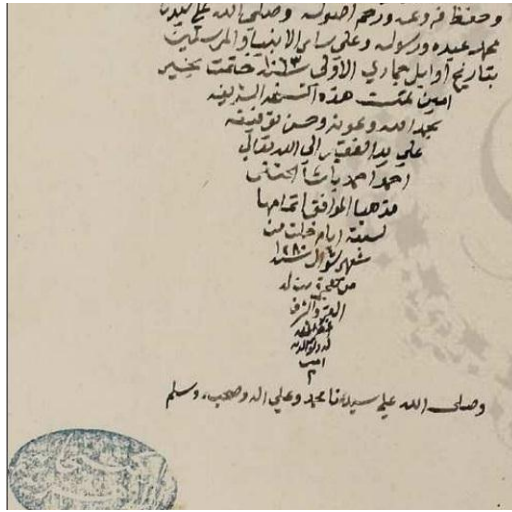 وحفظ فروعه ورحم اصوله وصلى الله على سيدنا
محمد عبده ورسوله وعلى سائر الانبياء والمرسلين
بتاريخ اوايل جمادي الاولى سنة ١٠٦٣ ختمت بخير
امين تمت هذه النسخه الشريفه
بحمد الله وعونه وحسن توفيقه
علي يد الفقير الى الله تعالي
احمد احمد باشا الحنفي
مذهبا الموافق اتمامها
لسبعة ايام خلت من
شهر شوال سنة ١٢٨٠
من هجرة من له
العز والشرف
امين
م
وصلى الله علي سيدنا محمد وعلي اله وصحبه وسلم